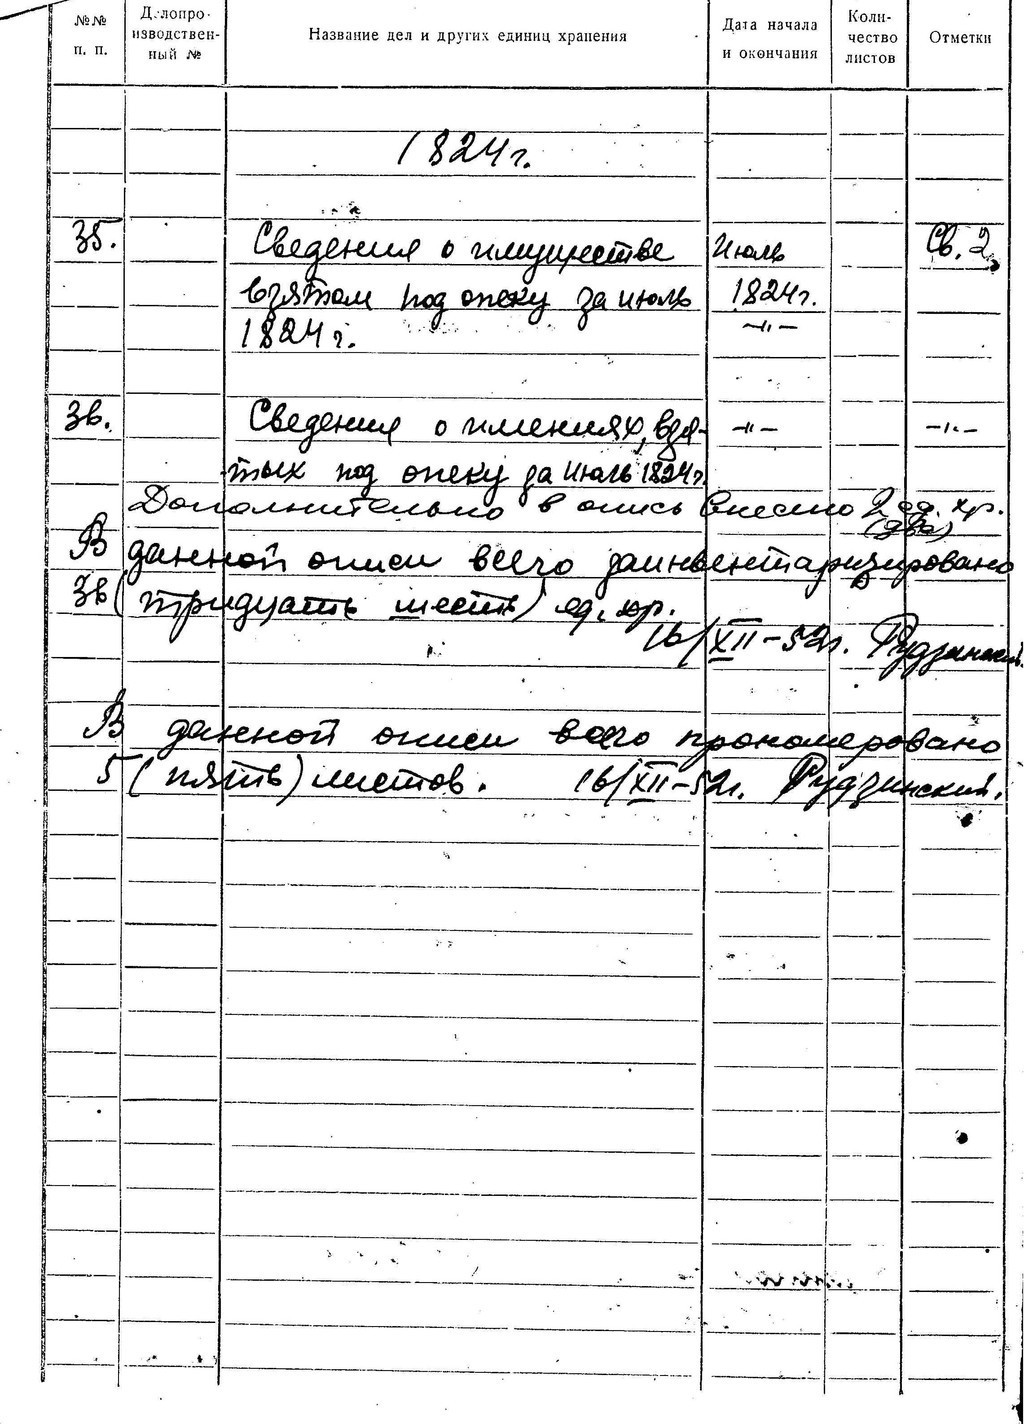 №№ п. п.
Делопро-
изводствен-
ный №
Название дел и других единиц хранения
Дата начала
и окончания
Коли-
чество
листов
Отметки
1824 г.
35. Сведения о имуществе Июль Св. 2
взятом под опеку за июль 1824 г.
1824 г. —"—
36. Сведения о имениях, взя- —"— —"—
тых под опеку за июль 1824 г.
Дополнительно в опись внесено 2 ед. хр.
(два)
В данной описи всего заинвентаризировано
36 (тридцать шесть) ед. хр.
16/XII-52г. Рудзинский.
В данной описи всего прономеровано
5 (пять) листов. 16/XII-52г. Рудзинский.